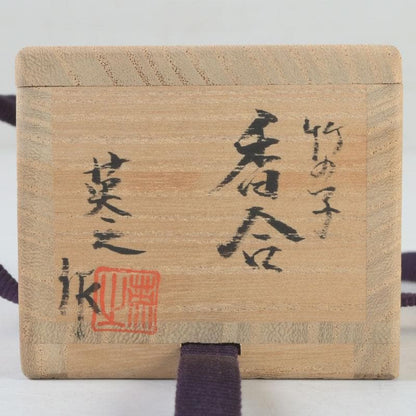 竹の子
香合
英之
作